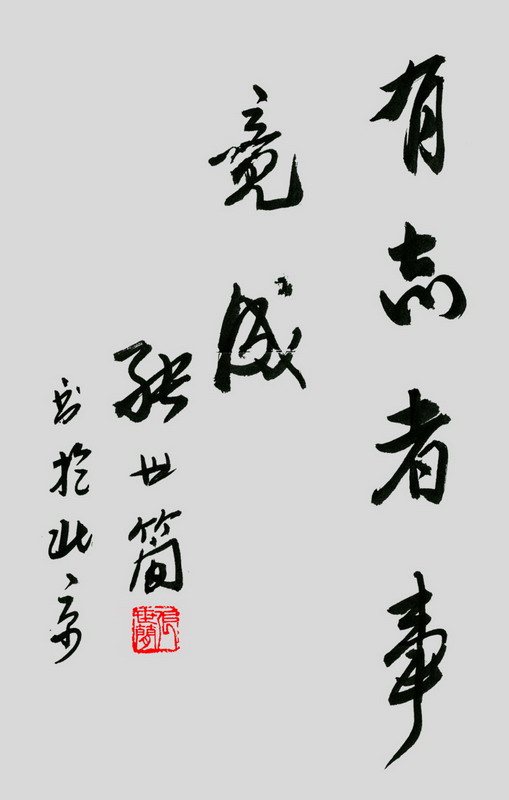 有志者事
竟成
张世简
书於北京